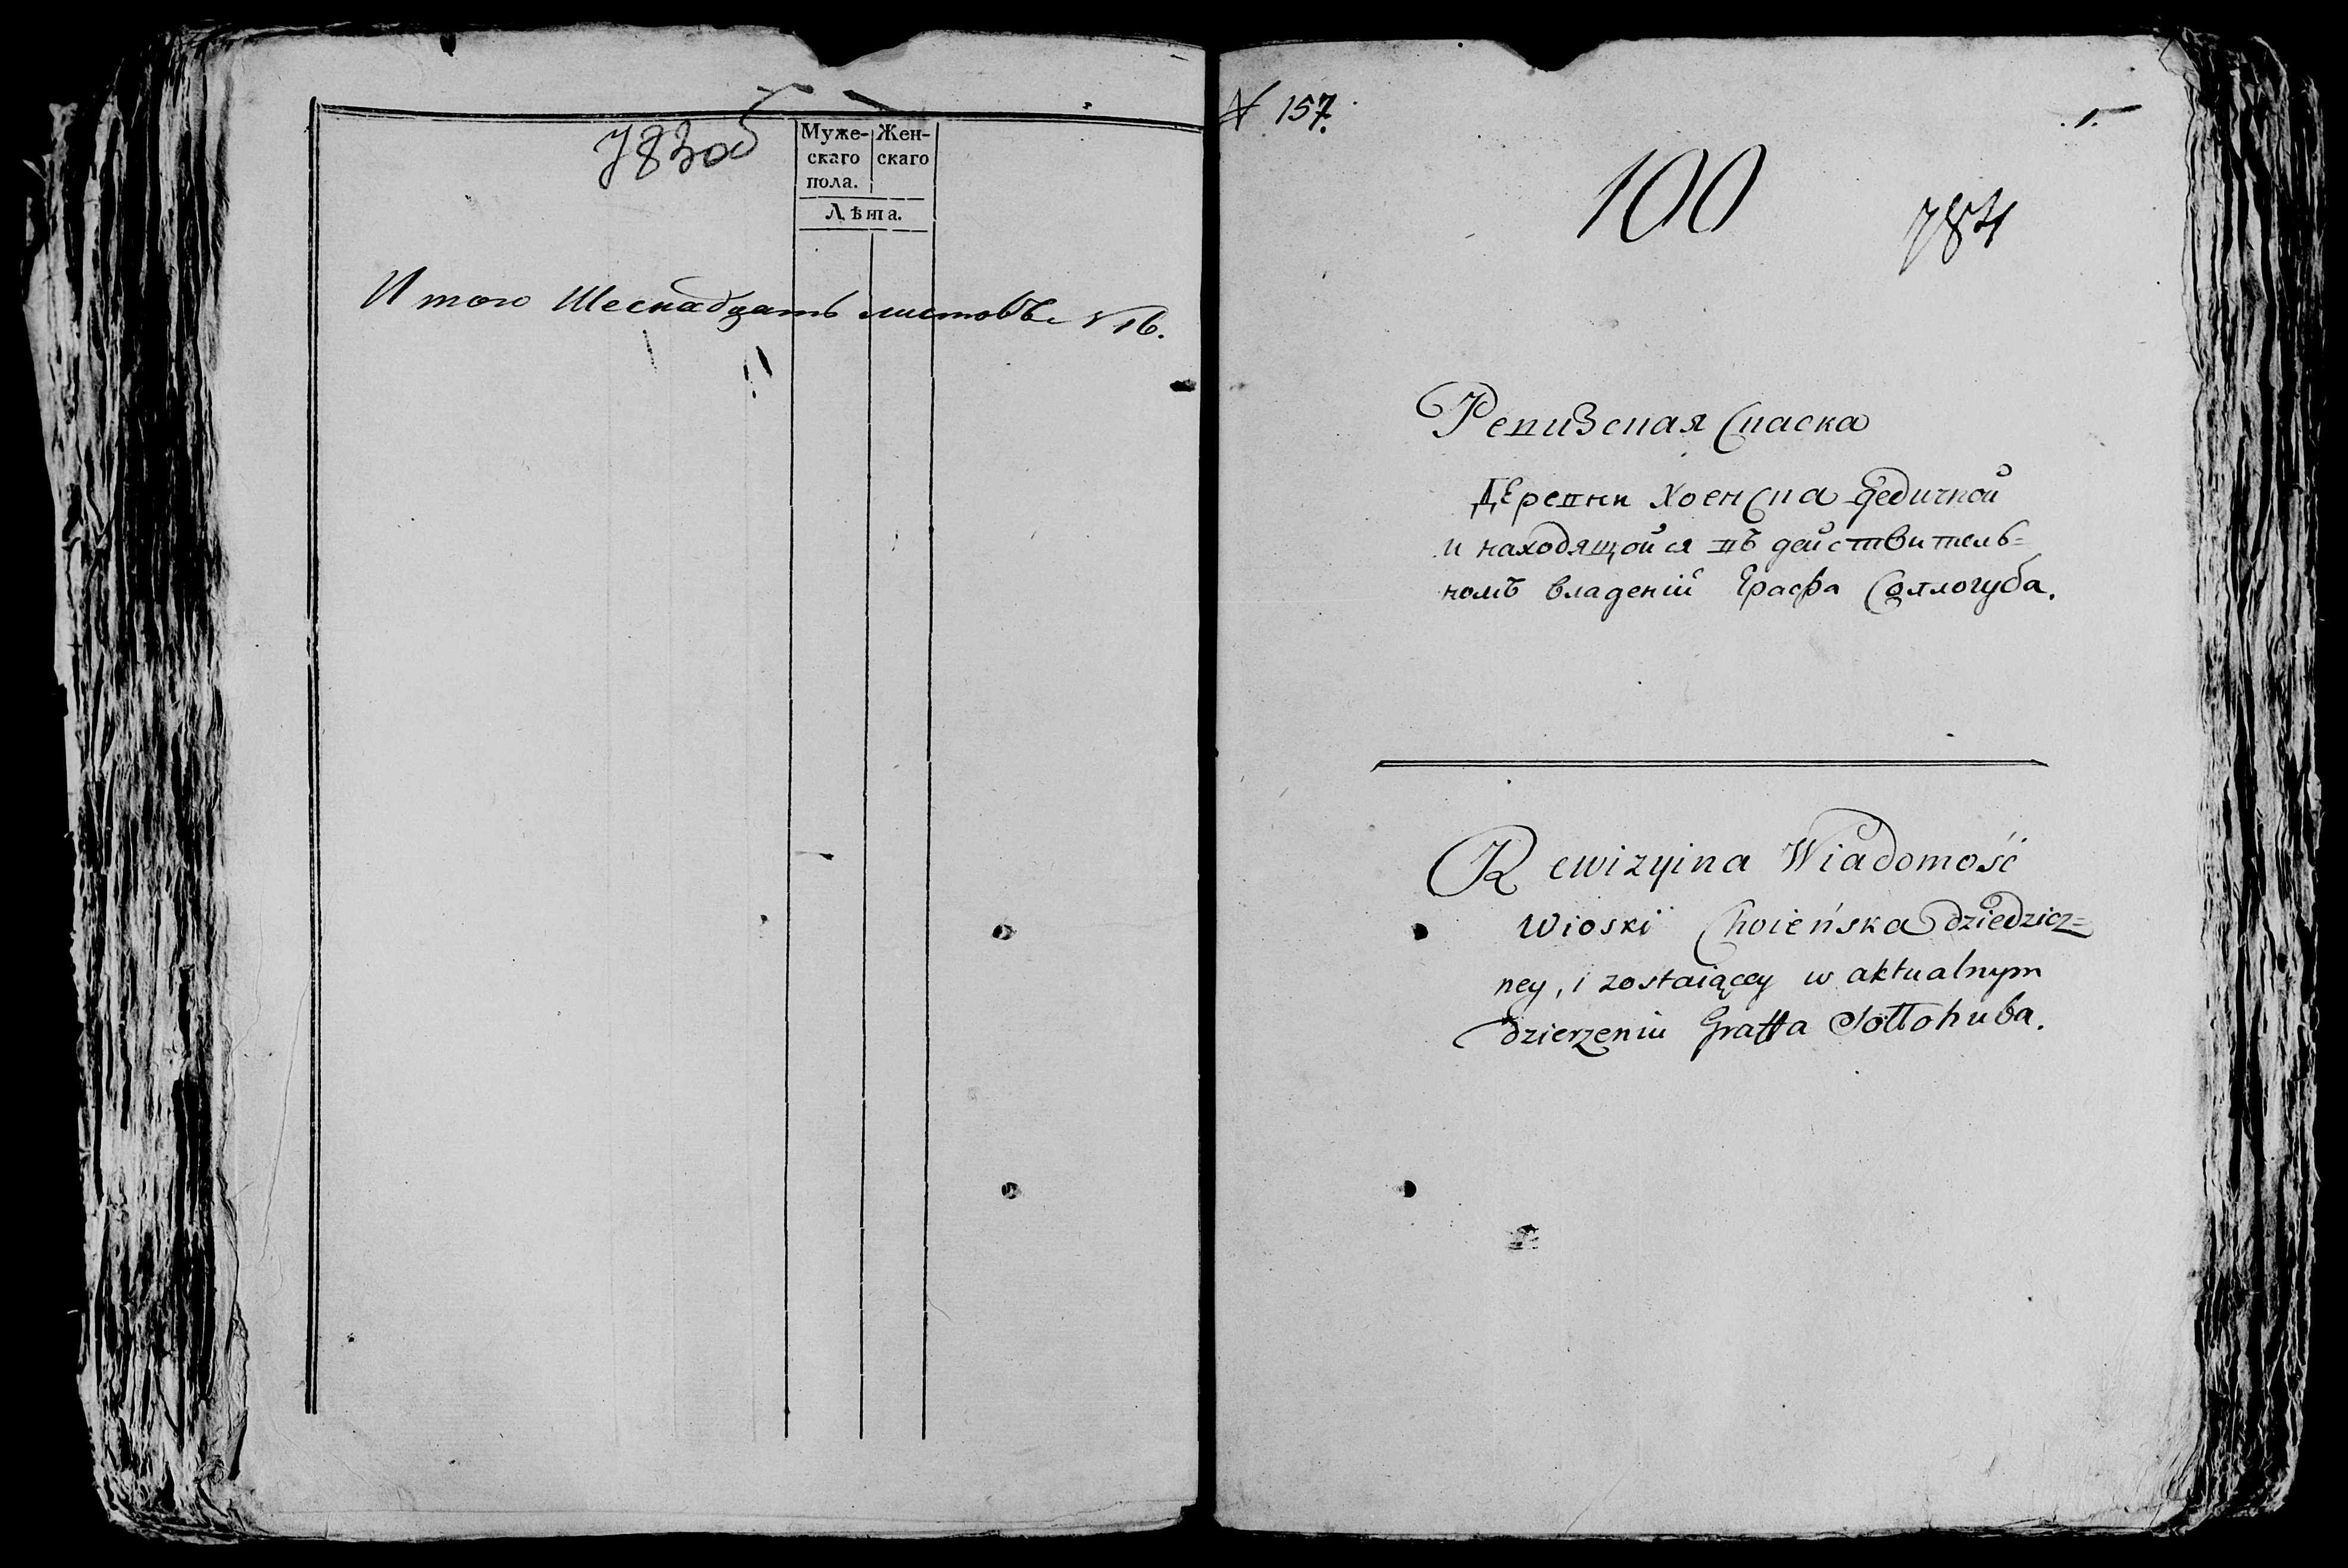 783об
Муже- Жен-
скаго скаго
пола.
Лѣта.
Итого Шеснадцать листовъ № 16.
№ 157.
1.
100
784
Ревизская Скаска
Деревни Хоенска дедичной
и находящойся въ действитель=
номъ владений Графа Соллогуба.
Rewizyina Wiadomość
Wioski Choieńska dziedzicz=
ney, i zostaiącey w aktualnym
dzierżeniu Graffa Sołłohuba.